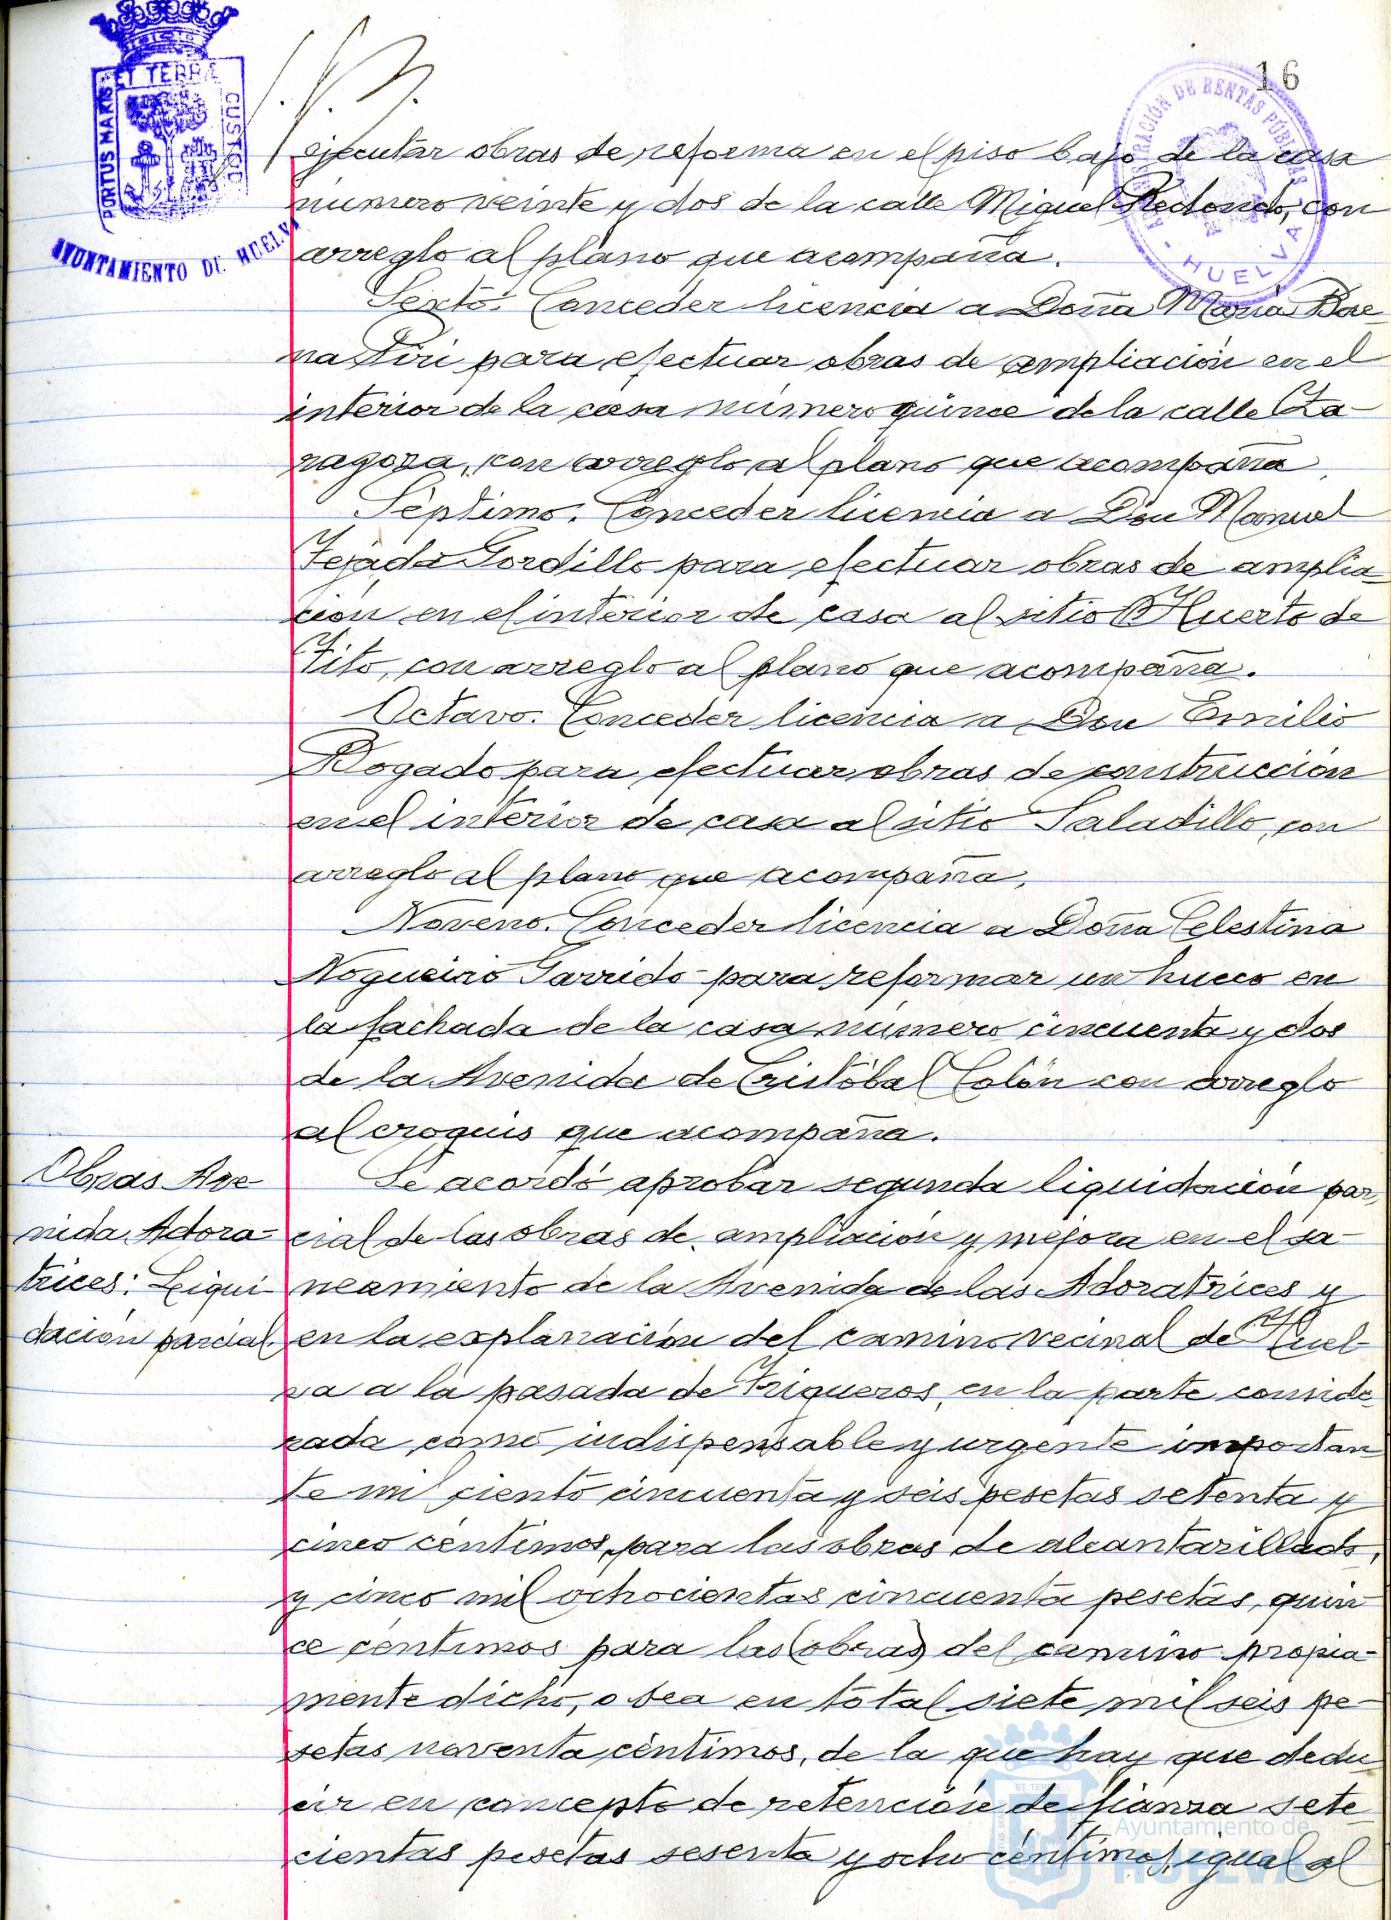 16
PORTUS MARIS ET TERRÆ CUSTODIA
AYUNTAMIENTO DE HUELVA
ADMINISTRACIÓN DE RENTAS PÚBLICAS
- HUELVA -
ejecutar obras de reforma en el piso bajo de la casa
número veinte y dos de la calle Miguel Redondo, con
arreglo al plano que acompaña.
Sexto. Conceder licencia a Doña María Bae-
na Piri para efectuar obras de ampliación en el
interior de la casa número quince de la calle Za-
ragoza, con arreglo al plano que acompaña.
Séptimo. Conceder licencia a Don Manuel
Tejada Gordillo para efectuar obras de amplia-
ción en el interior de casa al sitio Huerto de
Tito, con arreglo al plano que acompaña.
Octavo. Conceder licencia a Don Emilio
Bogado para efectuar obras de construcción
en el interior de casa al sitio Saladillo, con
arreglo al plano que acompaña.
Noveno. Conceder licencia a Doña Celestina
Nogueiro Garrido para reformar un hueco en
la fachada de la casa número cincuenta y dos
de la Avenida de Cristóbal Colón con arreglo
al croquis que acompaña.
Obras Ave
nida Adora-
trices: Liqui-
dación parcial.
Se acordó aprobar segunda liquidación par-
cial de las obras de ampliación y mejora en el sa-
neamiento de la Avenida de las Adoratrices y
en la explanación del camino vecinal de Huel-
va a la pasada de Trigueros, en la parte conside-
rada como indispensable y urgente importan-
te mil ciento cincuenta y seis pesetas setenta y
cinco céntimos, para las obras de alcantarillado,
y cinco mil ochocientas cincuenta pesetas, quin-
ce céntimos para las (obras) del camino propia-
mente dicho, o sea en total siete mil seis pe-
setas noventa céntimos, de la que hay que dedu-
cir en concepto de retención de fianza sete-
cientas pesetas sesenta y ocho céntimos, igual al
Ayuntamiento de
HUELVA